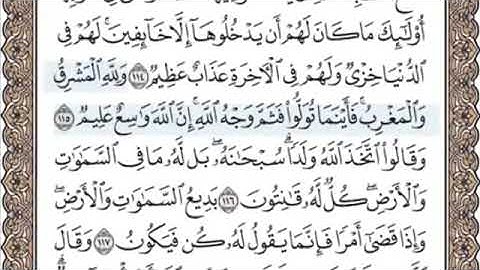 أُوْلَٰٓئِكَ مَا كَانَ لَهُمۡ أَن يَدۡخُلُوهَآ إِلَّا خَآئِفِينَۚ لَهُمۡ فِي
ٱلدُّنۡيَا خِزۡيٞ وَلَهُمۡ فِي ٱلۡأٓخِرَةِ عَذَابٌ عَظِيمٞ ١١٤ وَلِلَّهِ ٱلۡمَشۡرِقُ
وَٱلۡمَغۡرِبُۚ فَأَيۡنَمَا تُوَلُّواْ فَثَمَّ وَجۡهُ ٱللَّهِۚ إِنَّ ٱللَّهَ وَٰسِعٌ عَلِيمٞ ١١٥
وَقَالُواْ ٱتَّخَذَ ٱللَّهُ وَلَدٗاۗ سُبۡحَٰنَهُۥۖ بَل لَّهُۥ مَا فِي ٱلسَّمَٰوَٰتِ
وَٱلۡأَرۡضِۖ كُلّٞ لَّهُۥ قَٰنِتُونَ ١١٦ بَدِيعُ ٱلسَّمَٰوَٰتِ وَٱلۡأَرۡضِۖ
وَإِذَا قَضَىٰٓ أَمۡرٗا فَإِنَّمَا يَقُولُ لَهُۥ كُن فَيَكُونُ ١١٧ وَقَالَ